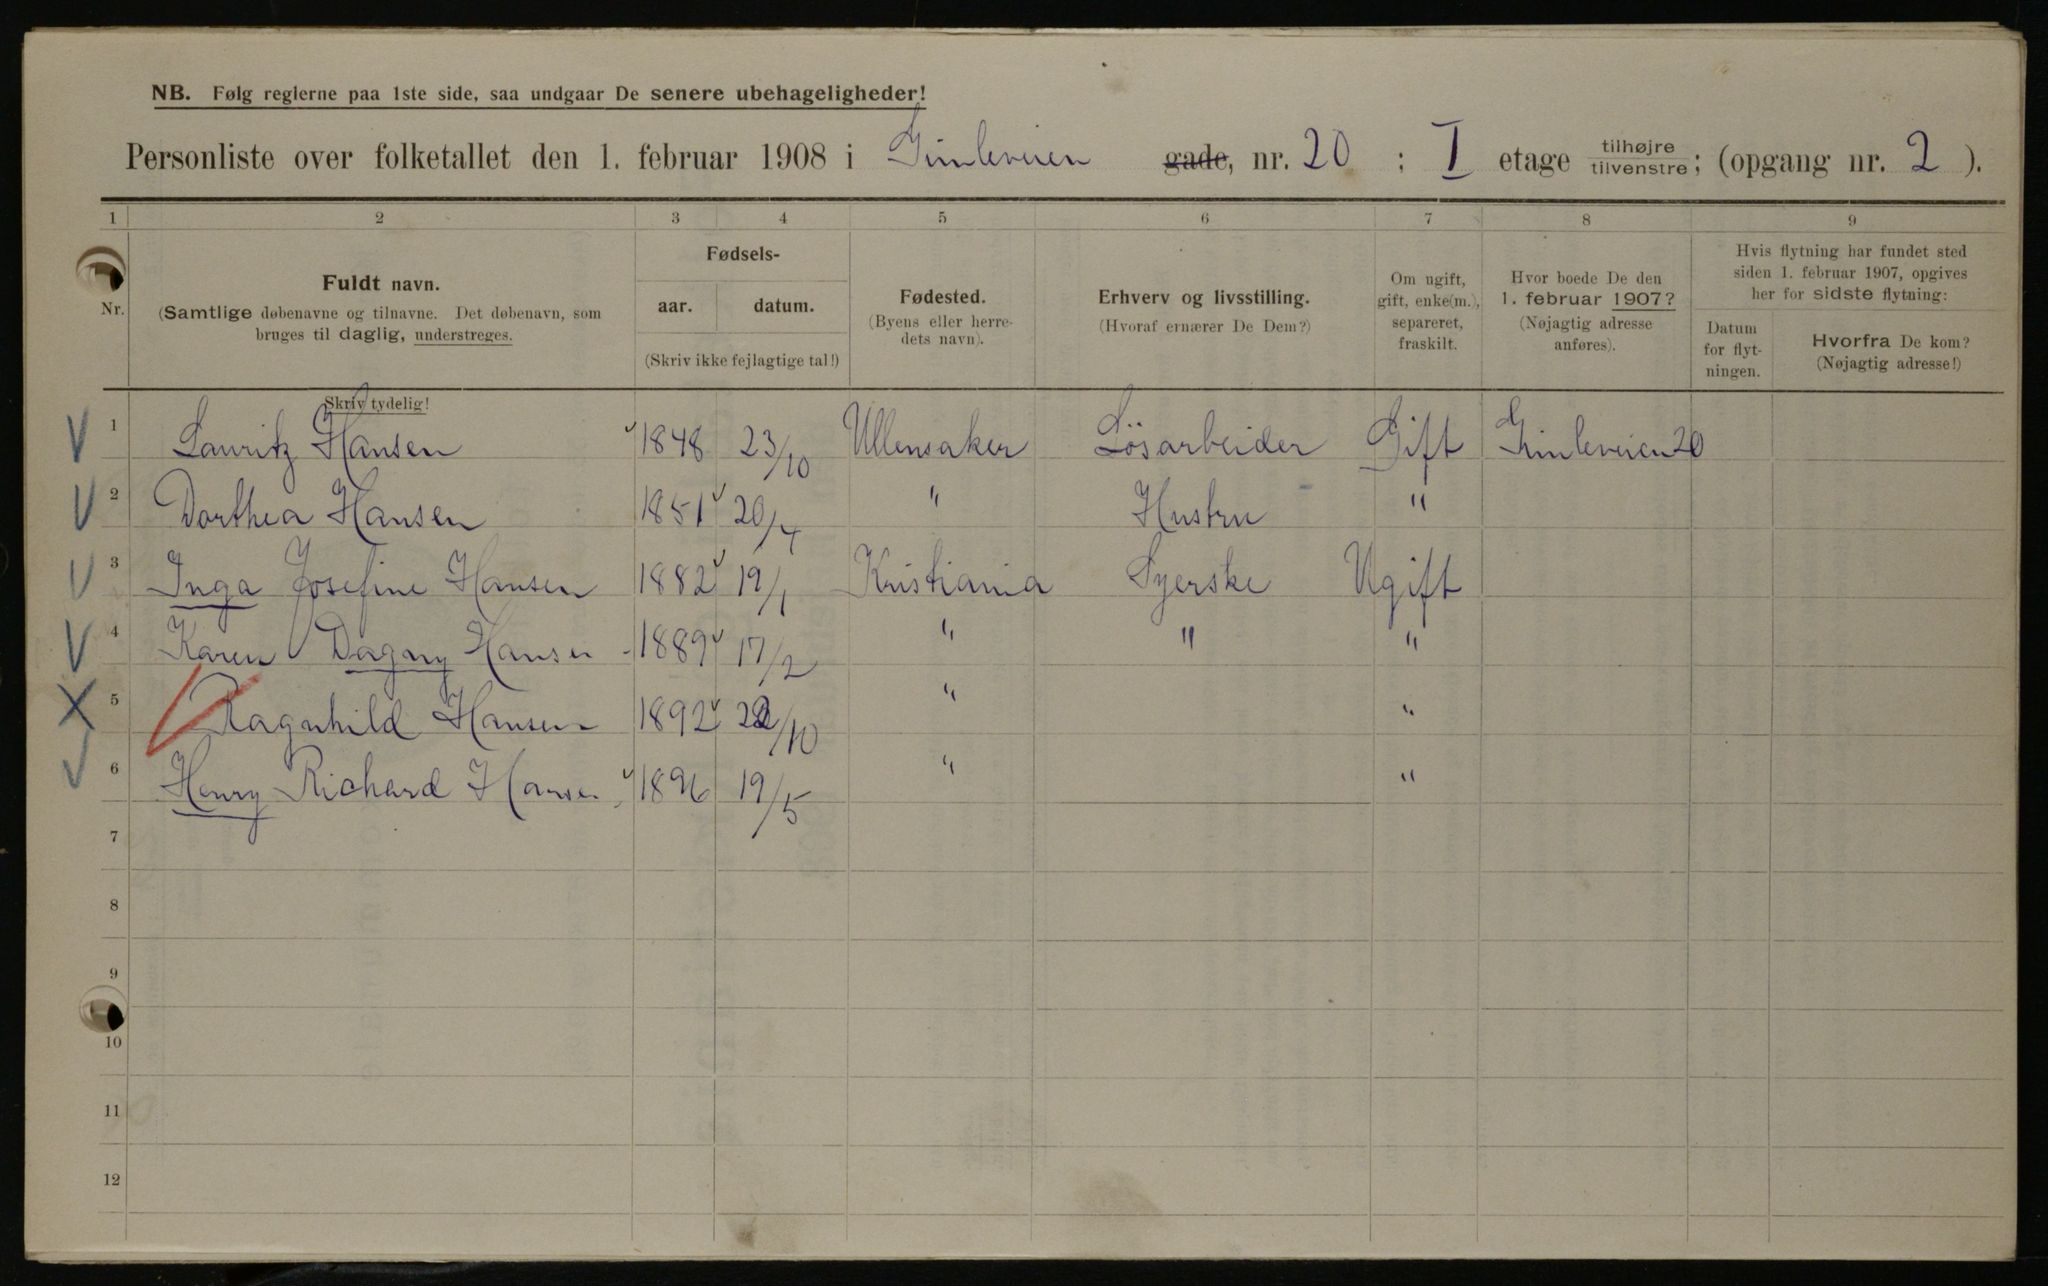 NB. Følg reglerne paa 1ste side, saa undgaar De senere ubehageligheder!
Personliste over folketallet den 1. februar 1908 i Gimleveien gade, nr. 20 ; I etage tilhøjre tilvenstre; (opgang nr. 2 ).
1 2 3 4 5 6 7 8 9
Nr.
Fuldt navn.
(Samtlige døbenavne og tilnavne. Det døbenavn, som
bruges til daglig, understreges.
Skriv tydelig!
Fødsels-
aar. datum.
(Skriv ikke fejlagtige tal!)
Fødested.
(Byens eller herre-
dets navn).
Erhverv og livsstilling.
(Hvoraf ernærer De Dem?)
Om ugift,
gift, enke(m.),
separeret,
fraskilt.
Hvor boede De den
1. februar 1907?
(Nøjagtig adresse
anføres).
Hvis flytning har fundet sted
siden 1. februar 1907, opgives
her for sidste flytning:
Datum
for flyt-
ningen.
Hvorfra De kom?
(Nøjagtig adresse!)
1 Lauritz Hansen 1848 23/10 Ullensaker Løsarbeider Gift Gimleveien 20
2 Dorthea Hansen 1851 20/4 " Hustru "
3 Inga Josefine Hansen 1882 19/1 Kristiania Syerske Ugift
4 Karen Dagny Hansen 1889 17/2 " " "
5 Ragnhild Hansen 1892 /10 " "
6 Henry Richard Hansen 1896 19/5 " "
7
8
9
10
11
12